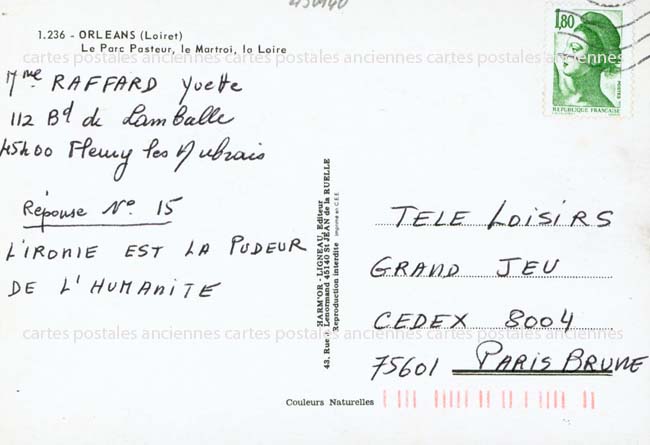 1.236 - ORLEANS (Loiret)
Le Parc Pasteur, le Martroi, la Loire
1,80
POSTES
REPUBLIQUE FRANÇAISE
cartes postales anciennes cartes postales anciennes cartes postales anciennes
Mme RAFFARD Yvette
112 Bd de Lamballe
45400 Fleury les Aubrais
Réponse No 15
L'IRONIE EST LA PUDEUR
DE L'HUMANITE
HARM'OR - LIGNEAU, Editeur
43, Rue R. Lenormand 45140 St JEAN de la RUELLE
Reproduction interdite Imprimé en C.E.E.
TELE LOISIRS
GRAND JEU
CEDEX 8004
75601 PARIS BRUNE
cartes postales anciennes cartes postales anciennes cartes postales anciennes
Couleurs Naturelles